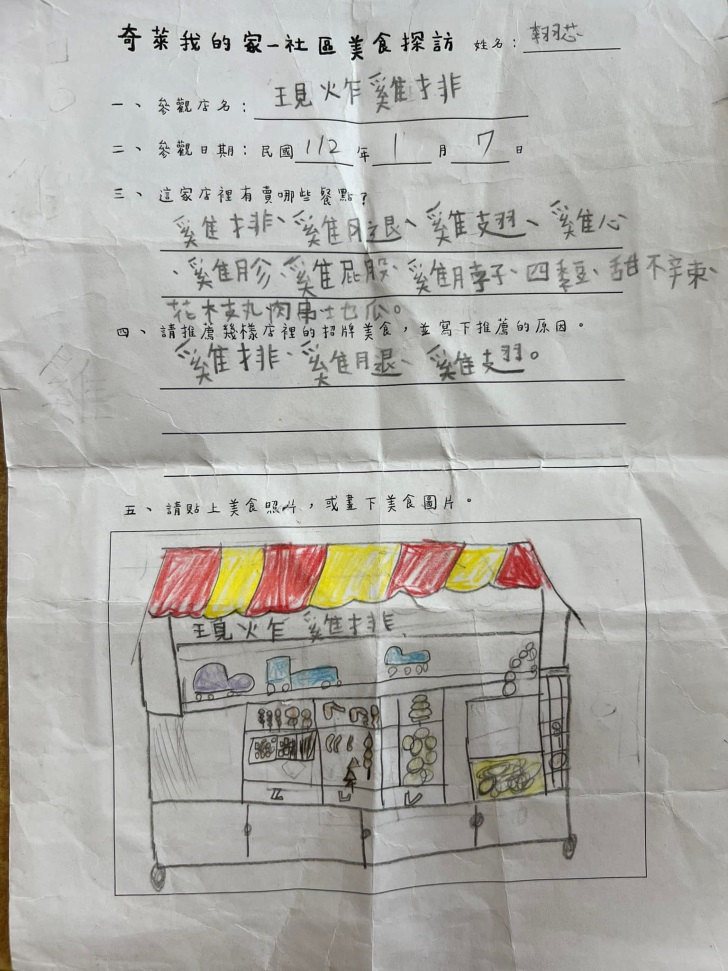 奇萊我的家–社區美食探訪 姓名：翱芯
一、參觀店名：現炸雞排
二、參觀日期：民國112年1月7日
三、這家店裡有賣哪些餐點？
雞排、雞腿、雞翅、雞心
、雞胗、雞屁股、雞脖子、四季豆、甜不辣、
花枝丸肉串地瓜。
四、請推薦幾樣店裡的招牌美食，並寫下推薦的原因。
雞排、雞腿、雞翅。
五、請貼上美食照片，或畫下美食圖片。
現炸雞排